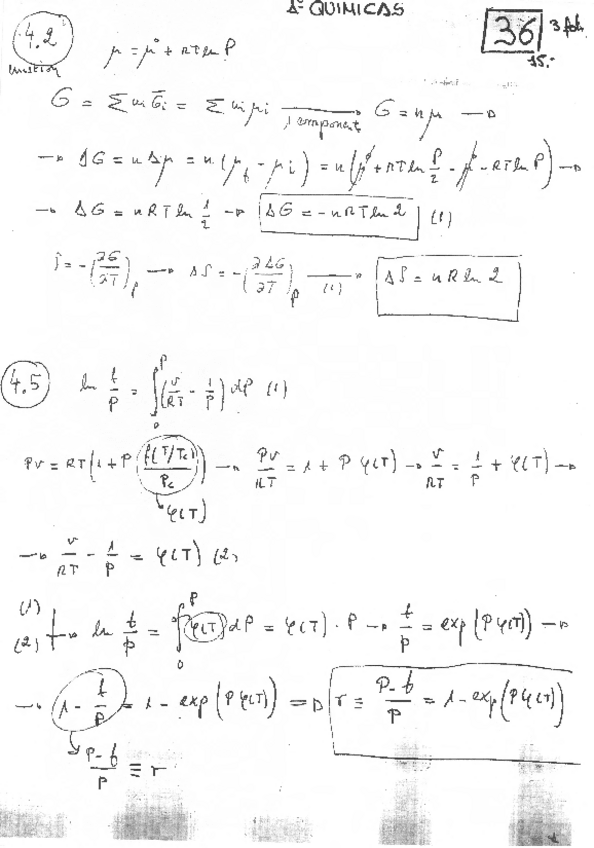 1º QUIMICAS
36 3 fol.
15.-
4.2
cuestion
μ = μ° + RT ln P
G = Σ ni G̅i = Σ ni μi → 1 component G = nμ →
→ ΔG = nΔμ = n(μf - μi) = n(μ° + RT ln P/2 - μ° - RT ln P) →
→ ΔG = nRT ln 1/2 → ΔG = -nRT ln 2 (1)
S = -(∂G/∂T)P → ΔS = -(∂ΔG/∂T)P (1) → ΔS = nR ln 2
4.5 ln f/P = ∫0^P (v/RT - 1/P) dP (1)
Pv = RT(1 + P f(T/Tc)/Pc) → Pv/RT = 1 + P φ(T) → v/RT = 1/P + φ(T) →
φ(T)
→ v/RT - 1/P = φ(T) (2)
(1)
(2) → ln f/P = ∫0^P φ(T) dP = φ(T) · P → f/P = exp(Pφ(T)) →
→ 1 - f/P = 1 - exp(Pφ(T)) ⇒ r ≡ P-f/P = 1 - exp(Pφ(T))
P-f/P ≡ r